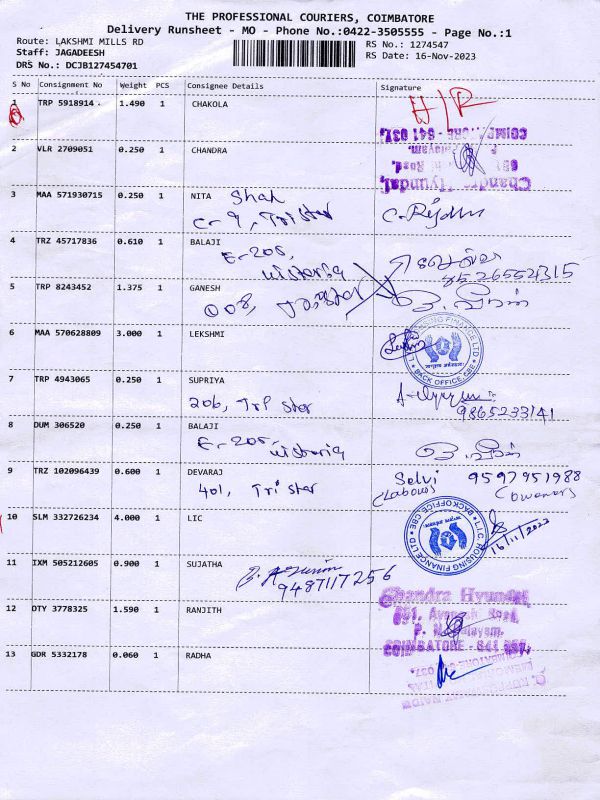 THE PROFESSIONAL COURIERS, COIMBATORE
Delivery Runsheet - MO - Phone No.:0422-3505555 - Page No.:1
Route: LAKSHMI MILLS RD
Staff: JAGADEESH
DRS No.: DCJB127454701
RS No.: 1274547
RS Date: 16-Nov-2023
S No Consignment No Weight PCS Consignee Details Signature
1 TRP 5918914 1.490 1 CHAKOLA
COIMBATORE - 641 037.
2 VLR 2709051 0.250 1 CHANDRA
Chandra Hyundai,
3 MAA 571930715 0.250 1 NITA Shah
C-9, Tristar
4 TRZ 45717836 0.610 1 BALAJI
E-205,
95265524315
5 TRP 8243452 1.375 1 GANESH
008, Tristar
6 MAA 570628809 3.000 1 LEKSHMI
HOUSING FINANCE LTD
BACK OFFICE CBE
7 TRP 4943065 0.250 1 SUPRIYA
206, Tri Star
9865233141
8 DUM 306520 0.250 1 BALAJI
E-205,
9 TRZ 102096439 0.600 1 DEVARAJ
401, Tri star
Selvi 9597951988
(Labour)
10 SLM 332726234 4.000 1 LIC
L.I.C. HOUSING FINANCE LTD
BACKOFFICE CBE
16/11/2023
11 IXM 505212605 0.900 1 SUJATHA
9487117256
Chandra Hyundai
12 DTY 3778325 1.590 1 RANJITH
COIMBATORE - 641 037.
13 GDR 5332178 0.060 1 RADHA